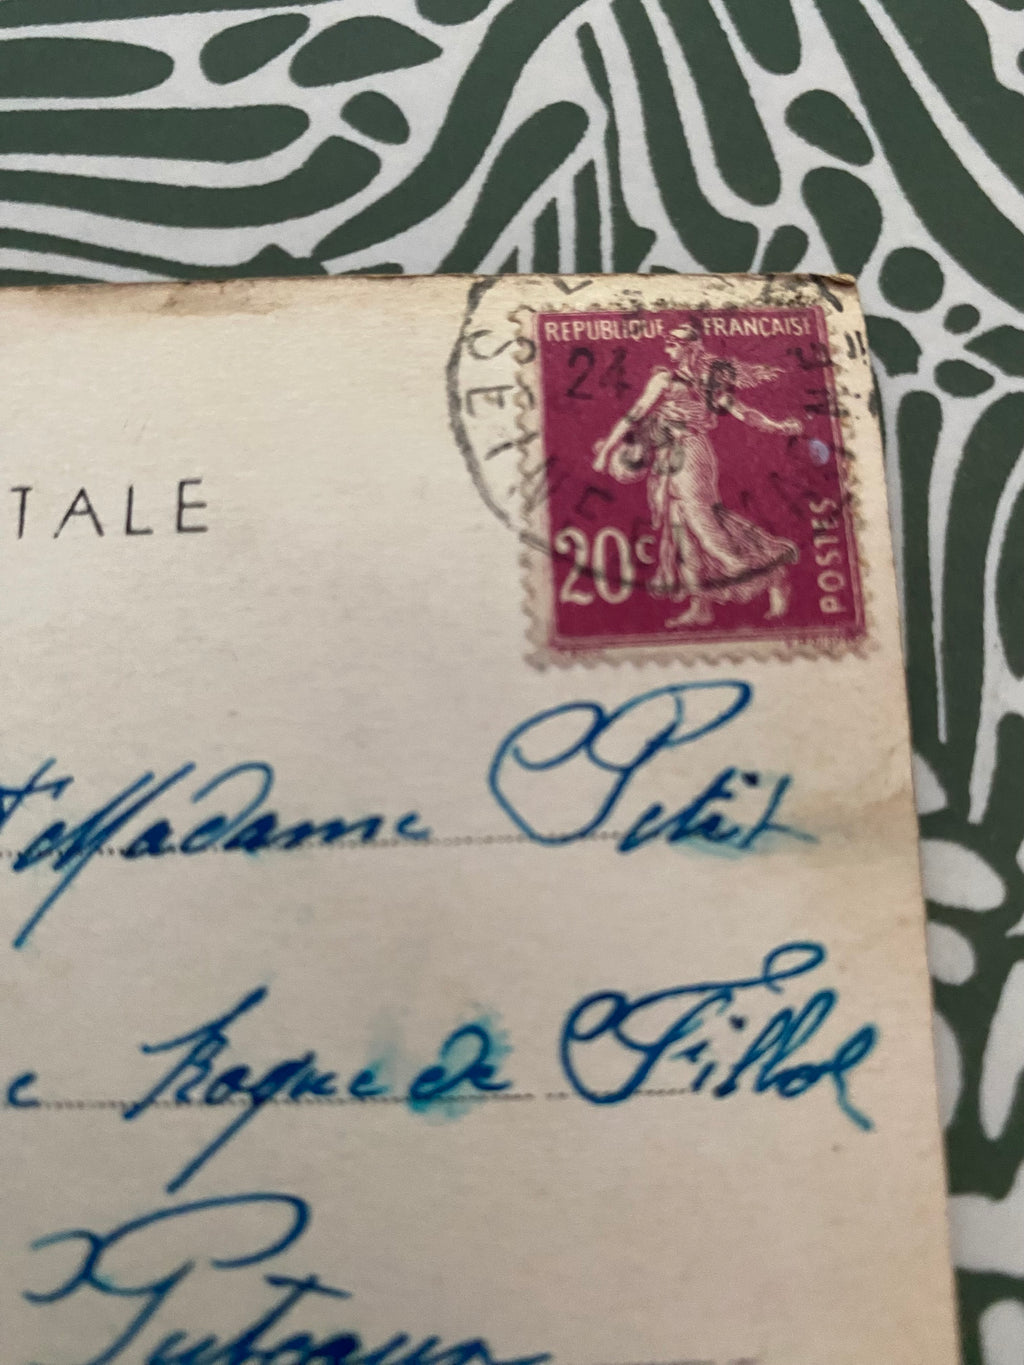 REPUBLIQUE FRANÇAISE
24 - 6
20c
POSTES
TALE
Madame Petit
Roque de Fillol
Puteaux